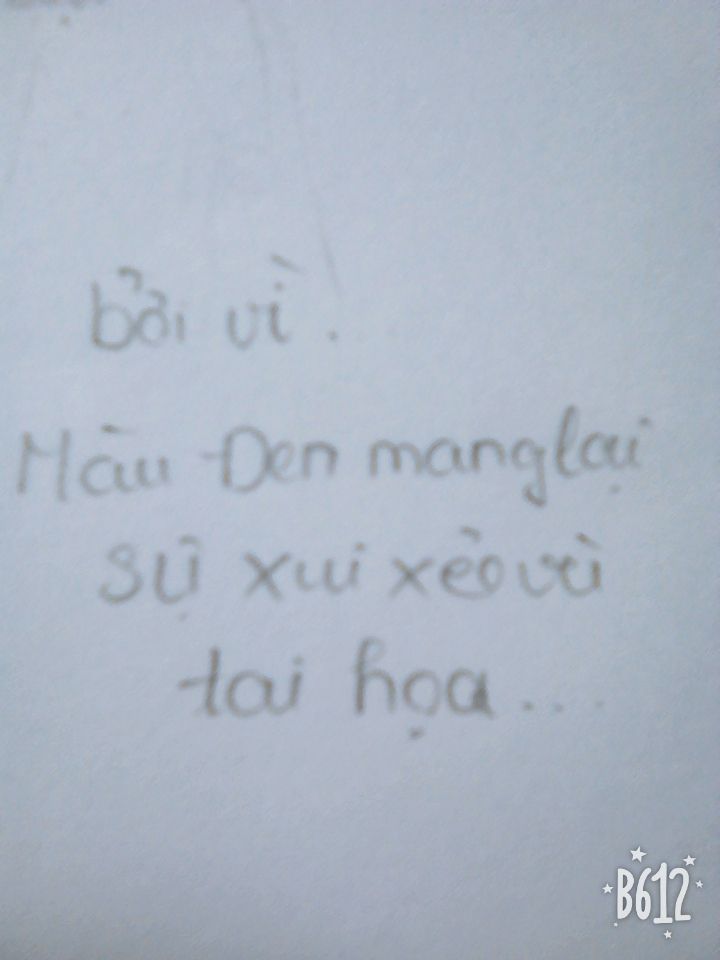 bởi vì.
Màu Đen mang lại
sự xui xẻo và
tai họa...
B612